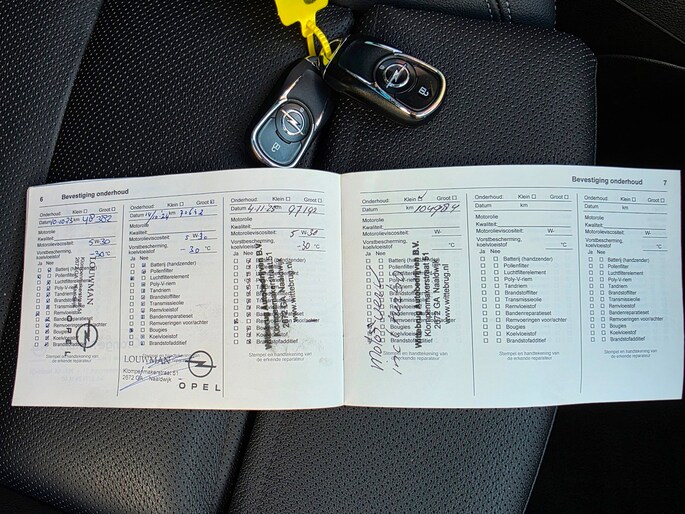 6 Bevestiging onderhoud
Onderhoud: Klein Groot
Datum 10-10-23 km 48382
Motorolie
Kwaliteit:
Motorolieviscositeit: 5 W 30
Vorstbescherming,
koelvloeistof -30 °C
Ja Nee
Batterij (handzender)
Pollenfilter
Luchtfilterelement
Poly-V-riem
Tandriem
Brandstoffilter
Transmissieolie
Remvloeistof
Bandenreparatieset
Remvoeringen voor/achter
Bougies
Koelvloeistof
Brandstofadditief
Stempel en handtekening van
de erkende reparateur
LOUWMAN
OPEL
Onderhoud: Klein Groot
Datum km
Motorolie
Kwaliteit:
Motorolieviscositeit: 5 W 30
Vorstbescherming,
koelvloeistof -30 °C
Ja Nee
Batterij (handzender)
Pollenfilter
Luchtfilterelement
Poly-V-riem
Tandriem
Brandstoffilter
Transmissieolie
Remvloeistof
Bandenreparatieset
Remvoeringen voor/achter
Bougies
Koelvloeistof
Brandstofadditief
LOUWMAN
Klompenmakerstraat 51
2672 GA Naaldwijk
OPEL
Onderhoud: Klein Groot
Datum 4-11-25 km 97192
Motorolie
Kwaliteit:
Motorolieviscositeit: 5 W 30
Vorstbescherming,
koelvloeistof -30 °C
Ja Nee
Batterij (handzender)
Pollenfilter
Luchtfilterelement
Poly-V-riem
Tandriem
Brandstoffilter
Transmissieolie
Remvloeistof
Bandenreparatieset
Remvoeringen voor/achter
Bougies
Koelvloeistof
Brandstofadditief
Stempel en handtekening van
de erkende reparateur
Wittebrug Autobedrijven B.V.
Klompenmakerstraat 51
2672 GA Naaldwijk
www.wittebrug.nl
Bevestiging onderhoud 7
Onderhoud: Klein Groot
Datum km 104984
Motorolie
Kwaliteit:
Motorolieviscositeit: W-
Vorstbescherming,
koelvloeistof °C
Ja Nee
Batterij (handzender)
Pollenfilter
Luchtfilterelement
Poly-V-riem
Tandriem
Brandstoffilter
Transmissieolie
Remvloeistof
Bandenreparatieset
Remvoeringen voor/achter
Bougies
Koelvloeistof
Brandstofadditief
Stempel en handtekening van
de erkende reparateur
Wittebrug Autobedrijven B.V.
Klompenmakerstraat 51
2672 GA Naaldwijk
www.wittebrug.nl
Onderhoud: Klein Groot
Datum km
Motorolie
Kwaliteit:
Motorolieviscositeit: W-
Vorstbescherming,
koelvloeistof °C
Ja Nee
Batterij (handzender)
Pollenfilter
Luchtfilterelement
Poly-V-riem
Tandriem
Brandstoffilter
Transmissieolie
Remvloeistof
Bandenreparatieset
Remvoeringen voor/achter
Bougies
Koelvloeistof
Brandstofadditief
Stempel en handtekening van
de erkende reparateur
Onderhoud: Klein Groot
Datum km
Motorolie
Kwaliteit:
Motorolieviscositeit: W-
Vorstbescherming,
koelvloeistof °C
Ja Nee
Batterij (handzender)
Pollenfilter
Luchtfilterelement
Poly-V-riem
Tandriem
Brandstoffilter
Transmissieolie
Remvloeistof
Bandenreparatieset
Remvoeringen voor/achter
Bougies
Koelvloeistof
Brandstofadditief
Stempel en handtekening van
de erkende reparateur